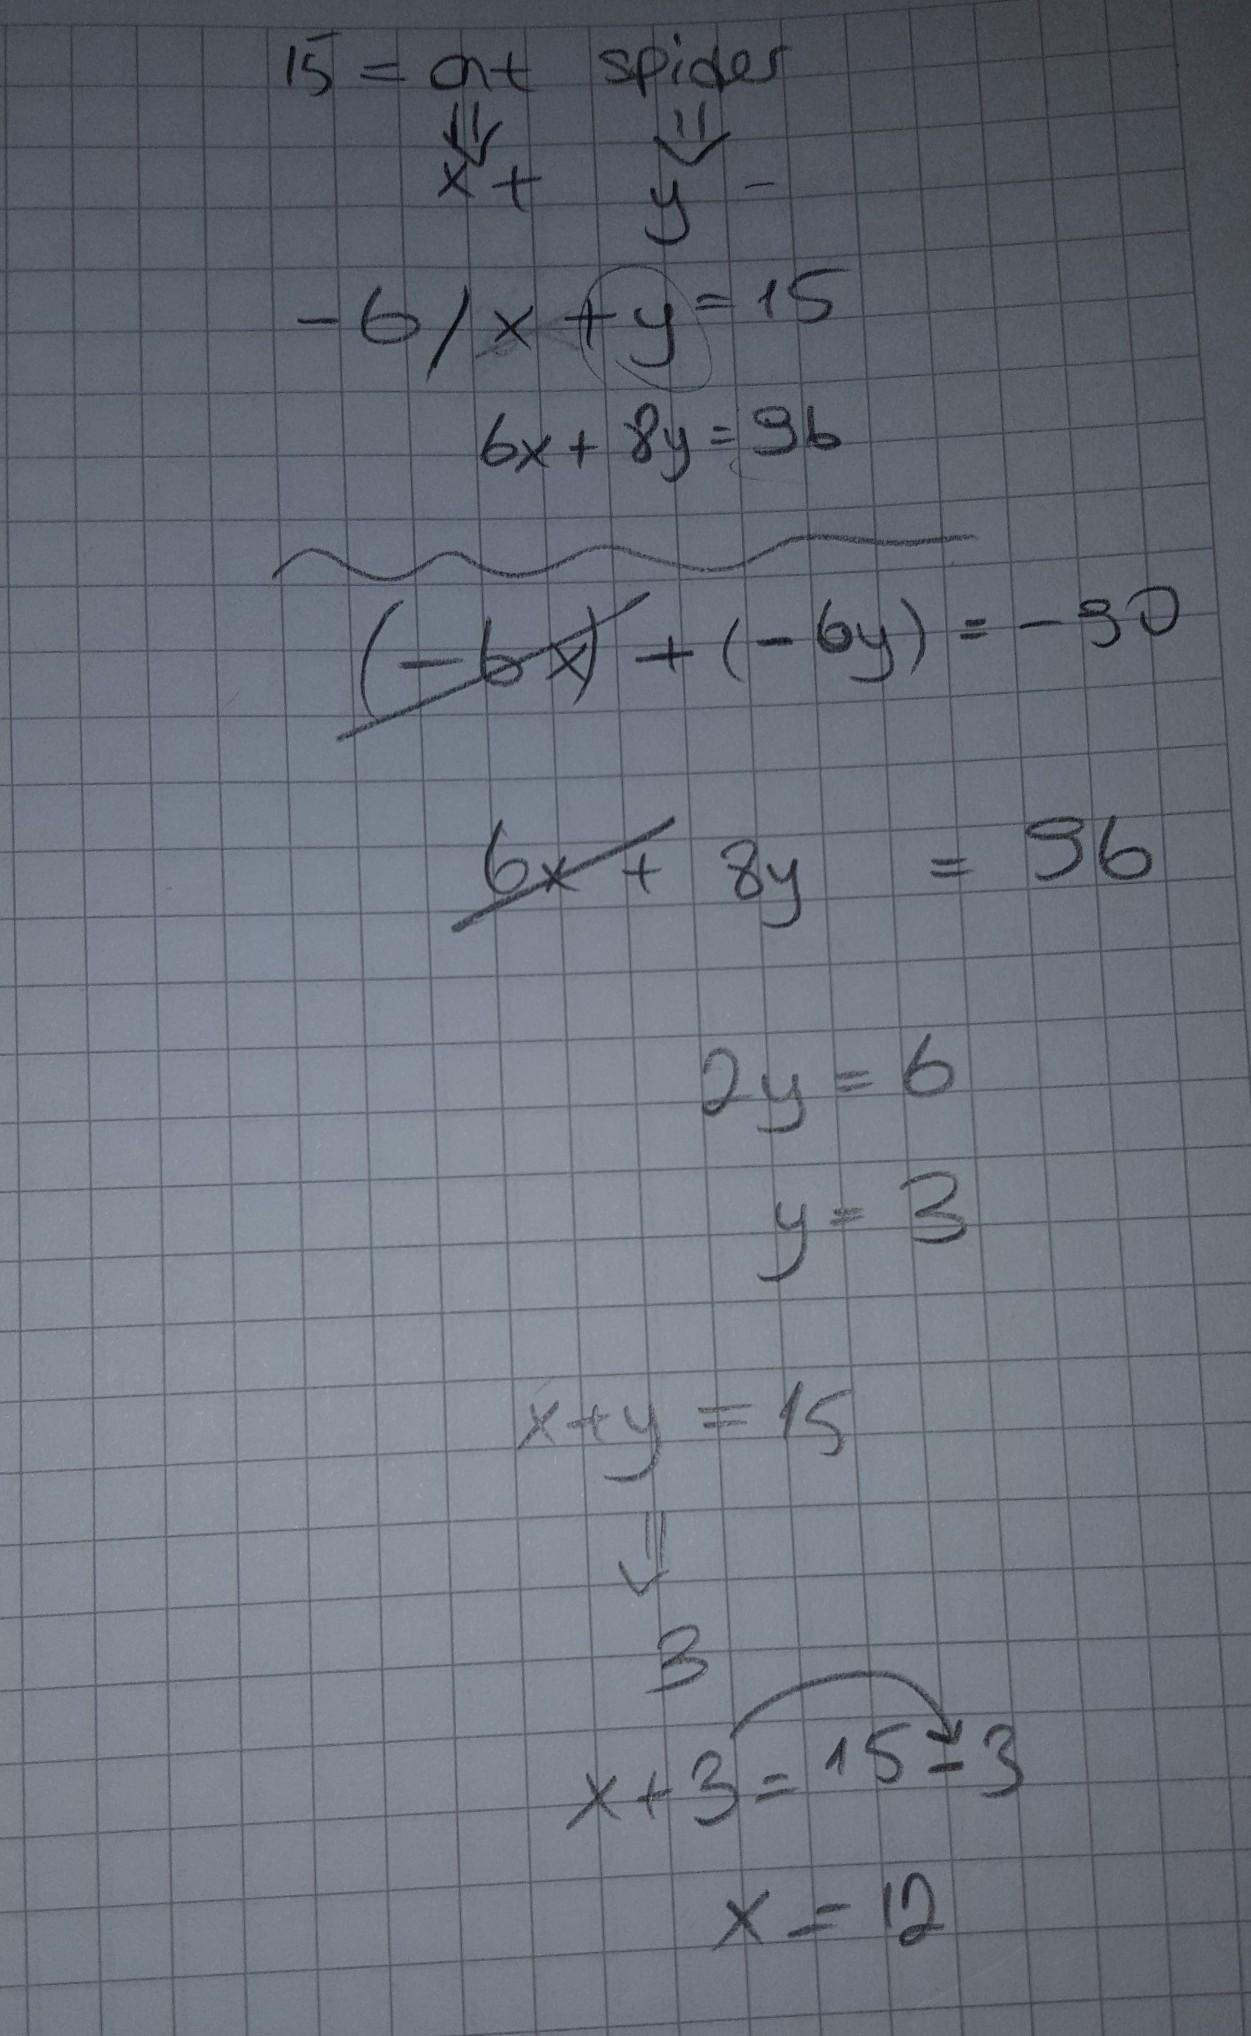 15 = ant spider
⇓ ⇓
x + y -
-6/ x + y = 15
6x + 8y = 96
(-6x) + (-6y) = -90
6x + 8y = 96
2y = 6
y = 3
x+y = 15
⇓
3
x+3 = 15-3
x = 12